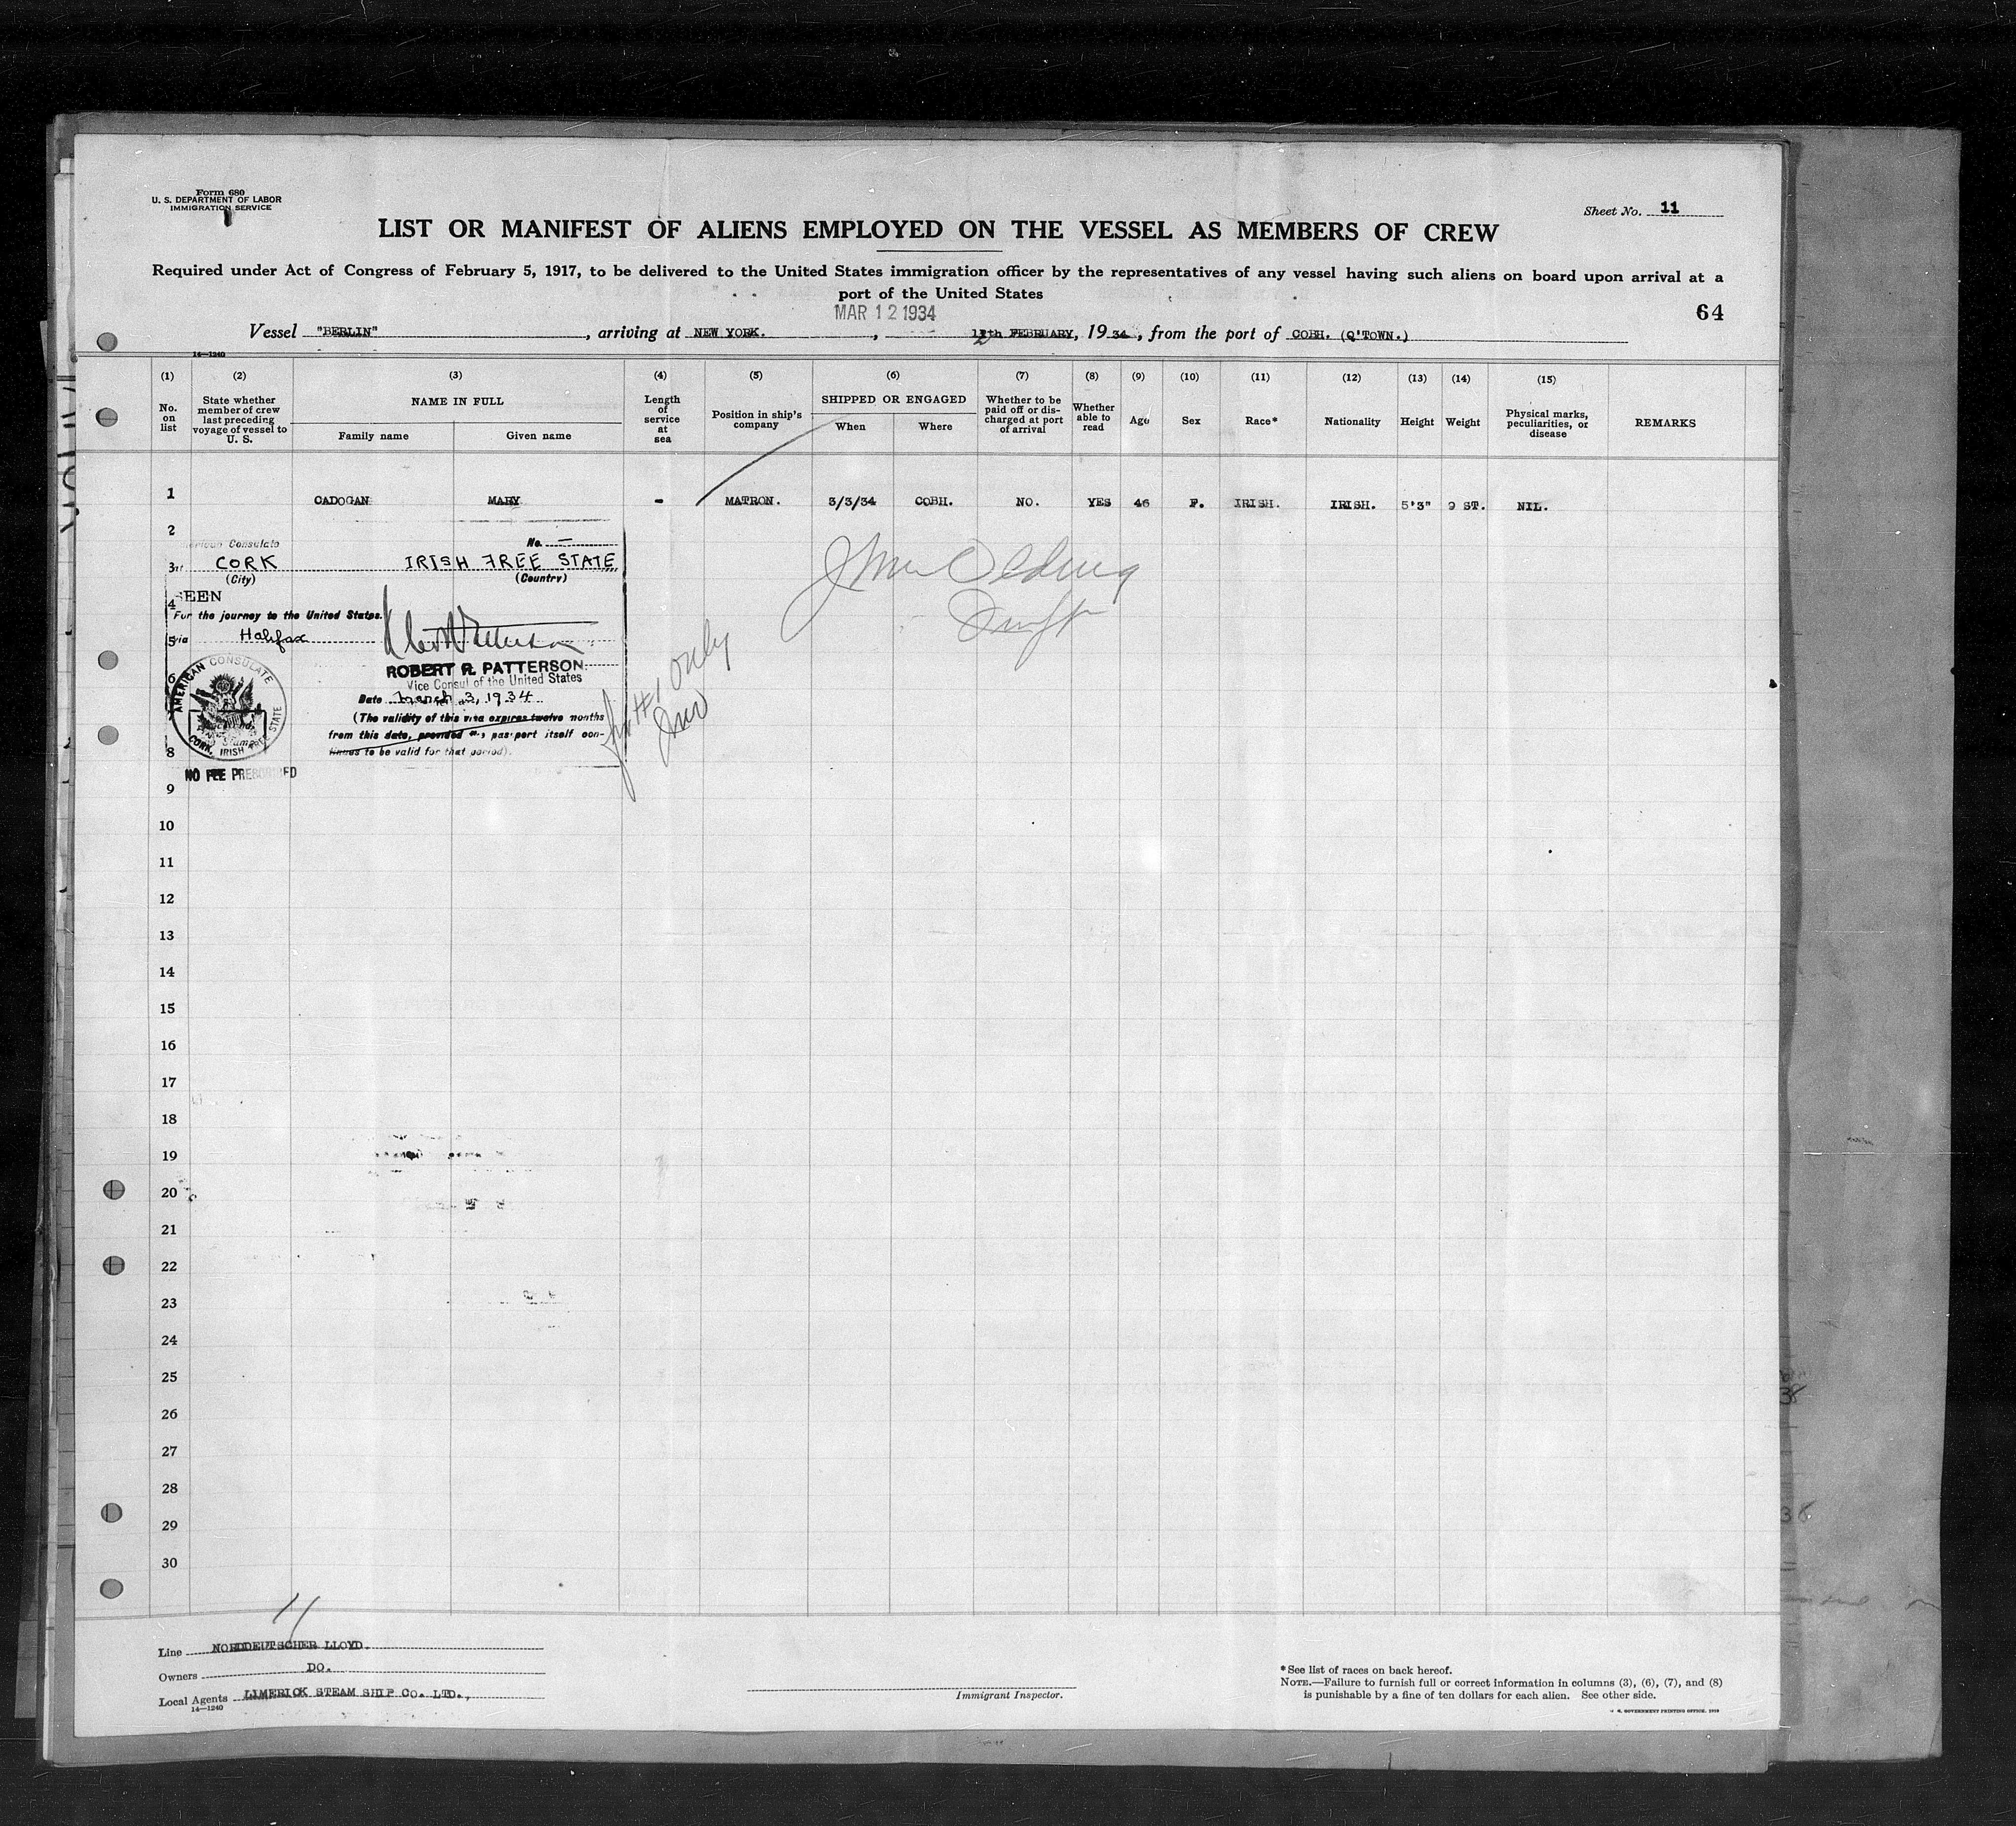 Form 680
U. S. DEPARTMENT OF LABOR
IMMIGRATION SERVICE
Sheet No. 11
LIST OR MANIFEST OF ALIENS EMPLOYED ON THE VESSEL AS MEMBERS OF CREW
Required under Act of Congress of February 5, 1917, to be delivered to the United States immigration officer by the representatives of any vessel having such aliens on board upon arrival at a
port of the United States
MAR 12 1934
64
Vessel "BERLIN", arriving at NEW YORK., 12th FEBRUARY, 1934, from the port of COBH. (Q'TOWN.)
14—1240
(1) (2) (3) (4) (5) (6) (7) (8) (9) (10) (11) (12) (13) (14) (15)
No. on list
State whether member of crew last preceding voyage of vessel to U. S.
NAME IN FULL
Family name
Given name
Length of service at sea
Position in ship's company
SHIPPED OR ENGAGED
When
Where
Whether to be paid off or discharged at port of arrival
Whether able to read
Age
Sex
Race*
Nationality
Height
Weight
Physical marks, peculiarities, or disease
REMARKS
1 CADOGAN MARY - MATRON. 3/3/34 COBH. NO. YES 46 F. IRISH. IRISH. 5'3" 9 ST. NIL.
2
American Consulate No. —
3
CORK IRISH FREE STATE
(City) (Country)
SEEN
4
For the journey to the United States.
5
via Halifax
ROBERT R. PATTERSON
Vice Consul of the United States
6
Date March 3, 1934
(The validity of this visa expires twelve months
from this date, provided the passport itself con-
tinues to be valid for that period).
AMERICAN CONSULATE
CORK, IRISH FREE STATE
8
NO FEE PRESCRIBED
#1 only
9
10
11
12
13
14
15
16
17
18
19
20
21
22
23
24
25
26
27
28
29
30
11
Line NORDDEUTSCHER LLOYD.
Owners DO.
Local Agents LIMERICK STEAM SHIP CO. LTD.,
14—1240
Immigrant Inspector.
*See list of races on back hereof.
NOTE.—Failure to furnish full or correct information in columns (3), (6), (7), and (8)
is punishable by a fine of ten dollars for each alien. See other side.